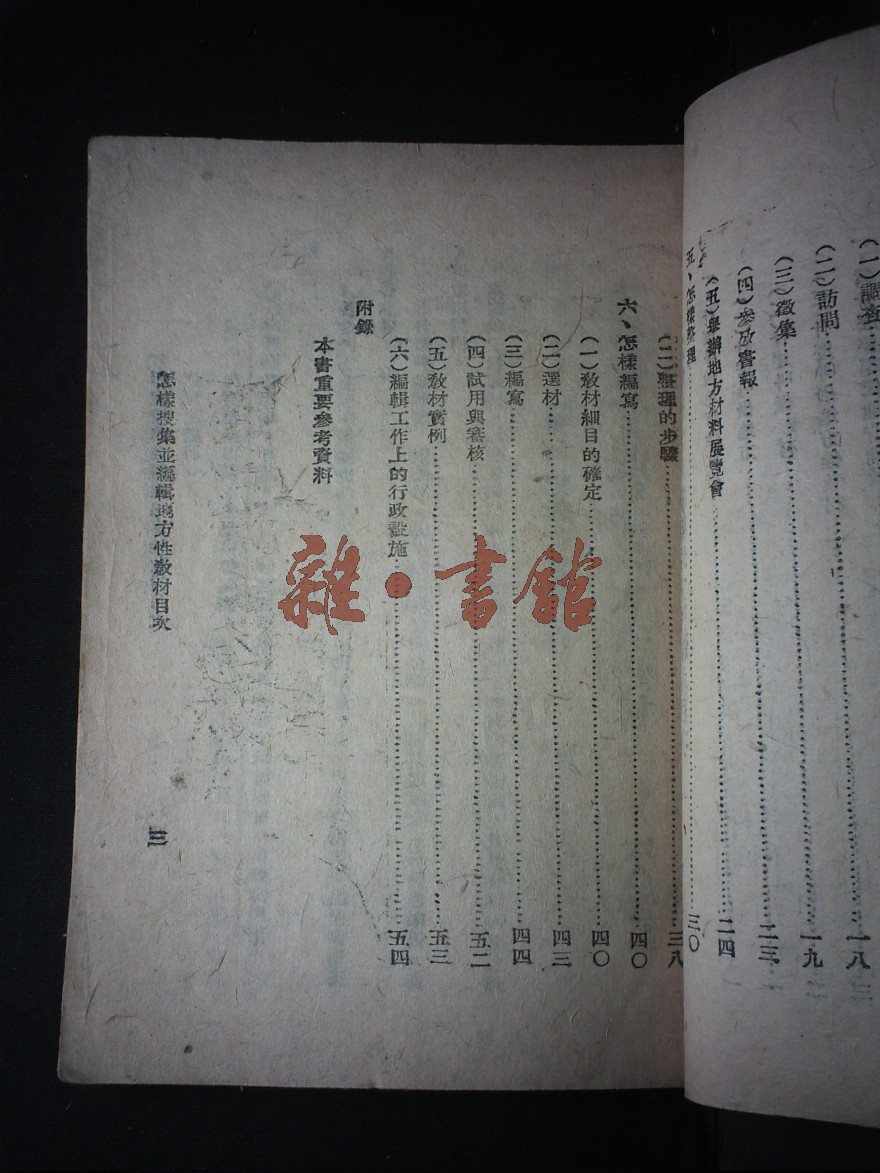 (一)調查……一八
(二)訪問……一九
(三)徵集……二三
(四)參攷書報……二四
(五)舉辦地方材料展覽會
五、怎樣整理……三〇
(二)整理的步驟……三八
六、怎樣編寫……四〇
(一)教材細目的確定……四〇
(二)選材……四三
(三)編寫……四四
(四)試用與審核……五二
(五)教材實例……五三
(六)編輯工作上的行政設施……五四
本書重要參考資料
附錄
怎樣搜集並編輯地方性教材目次
三
雜·書館